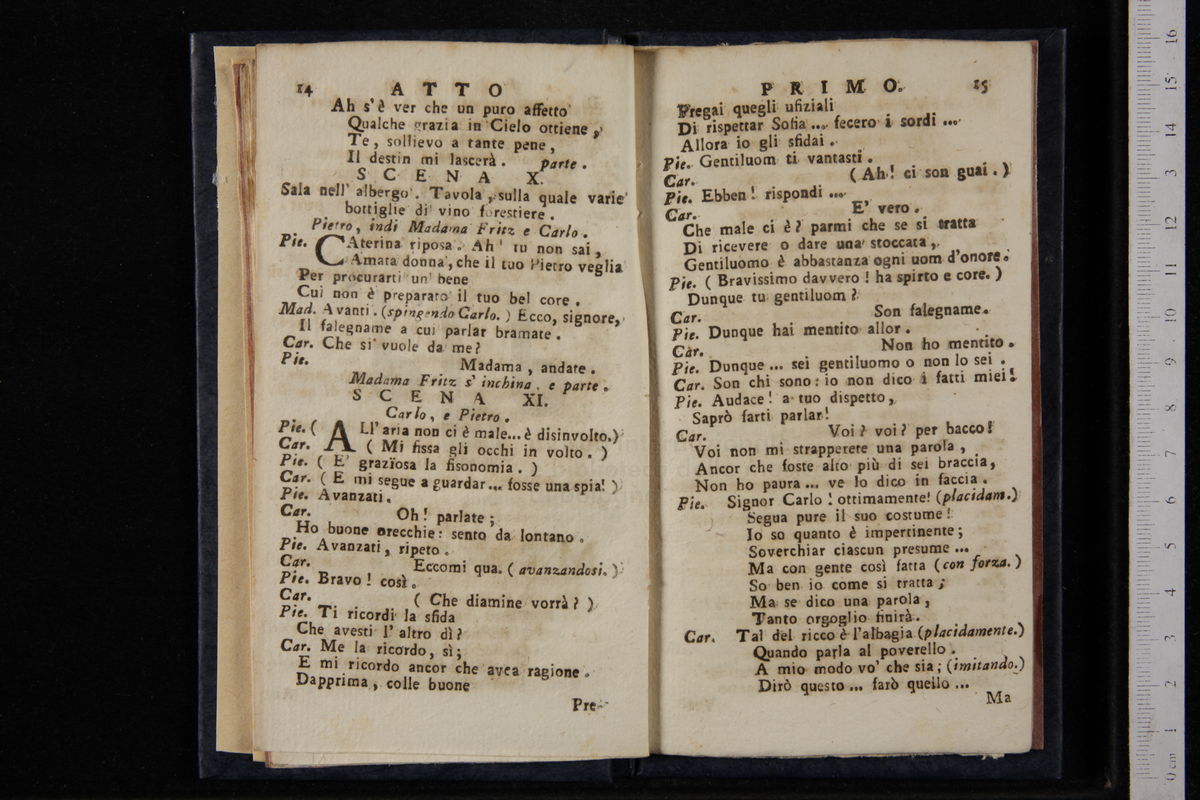 14 ATTO
Ah s'è ver che un puro affetto
Qualche grazia in Cielo ottiene,
Te, sollievo a tante pene,
Il destin mi lascerà. parte.
SCENA X.
Sala nell' albergo. Tavola, sulla quale varie
bottiglie di vino forestiere.
Pietro, indi Madama Fritz e Carlo.
Pie. CAterina riposa. Ah! tu non sai,
Amata donna, che il tuo Pietro veglia
Per procurarti un bene
Cui non è preparato il tuo bel core.
Mad. Avanti. (spingendo Carlo.) Ecco, signore,
Il falegname a cui parlar bramate.
Car. Che si vuole da me?
Pie. Madama, andate.
Madama Fritz s' inchina, e parte.
SCENA XI.
Carlo, e Pietro.
Pie. (ALl' aria non ci è male... è disinvolto.)
Car. (Mi fissa gli occhi in volto.)
Pie. (E' grazïosa la fisonomia.)
Car. (E mi segue a guardar... fosse una spia!)
Pie. Avanzati.
Car. Oh! parlate;
Ho buone orecchie: sento da lontano.
Pie. Avanzati, ripeto.
Car. Eccomi qua. (avanzandosi.)
Pie. Bravo! così.
Car. (Che diamine vorrà?)
Pie. Ti ricordi la sfida
Che avesti l' altro dì?
Car. Me la ricordo, sì;
E mi ricordo ancor che avea ragione.
Dapprima, colle buone
Pre-
PRIMO. 15
Pregai quegli ufiziali
Di rispettar Sofia ... fecero i sordi ...
Allora io gli sfidai.
Pie. Gentiluom ti vantasti.
Car. (Ah! ci son guai.)
Pie. Ebben! rispondi ...
Car. E' vero.
Che male ci è? parmi che se si tratta
Di ricevere o dare una stoccata,
Gentiluomo è abbastanza ogni uom d'onore.
Pie. (Bravissimo davvero! ha spirto e core.)
Dunque tu gentiluom?
Car. Son falegname.
Pie. Dunque hai mentito allor.
Car. Non ho mentito.
Pie. Dunque ... sei gentiluomo o non lo sei.
Car. Son chi sono: io non dico i fatti miei!
Pie. Audace! a tuo dispetto,
Saprò farti parlar!
Car. Voi? voi? per bacco!
Voi non mi strapperete una parola,
Ancor che foste alto più di sei braccia,
Non ho paura ... ve lo dico in faccia.
Pie. Signor Carlo! ottimamente! (placidam.)
Segua pure il suo costume!
Io so quanto è impertinente;
Soverchiar ciascun presume ...
Ma con gente così fatta (con forza.)
So ben io come si tratta;
Ma se dico una parola,
Tanto orgoglio finirà.
Car. Tal del ricco è l'albagia (placidamente.)
Quando parla al poverello.
A mio modo vo' che sia; (imitando.)
Dirò questo ... farò quello ...
Ma
0 cm 1 2 3 4 5 6 7 8 9 10 11 12 13 14 15 16